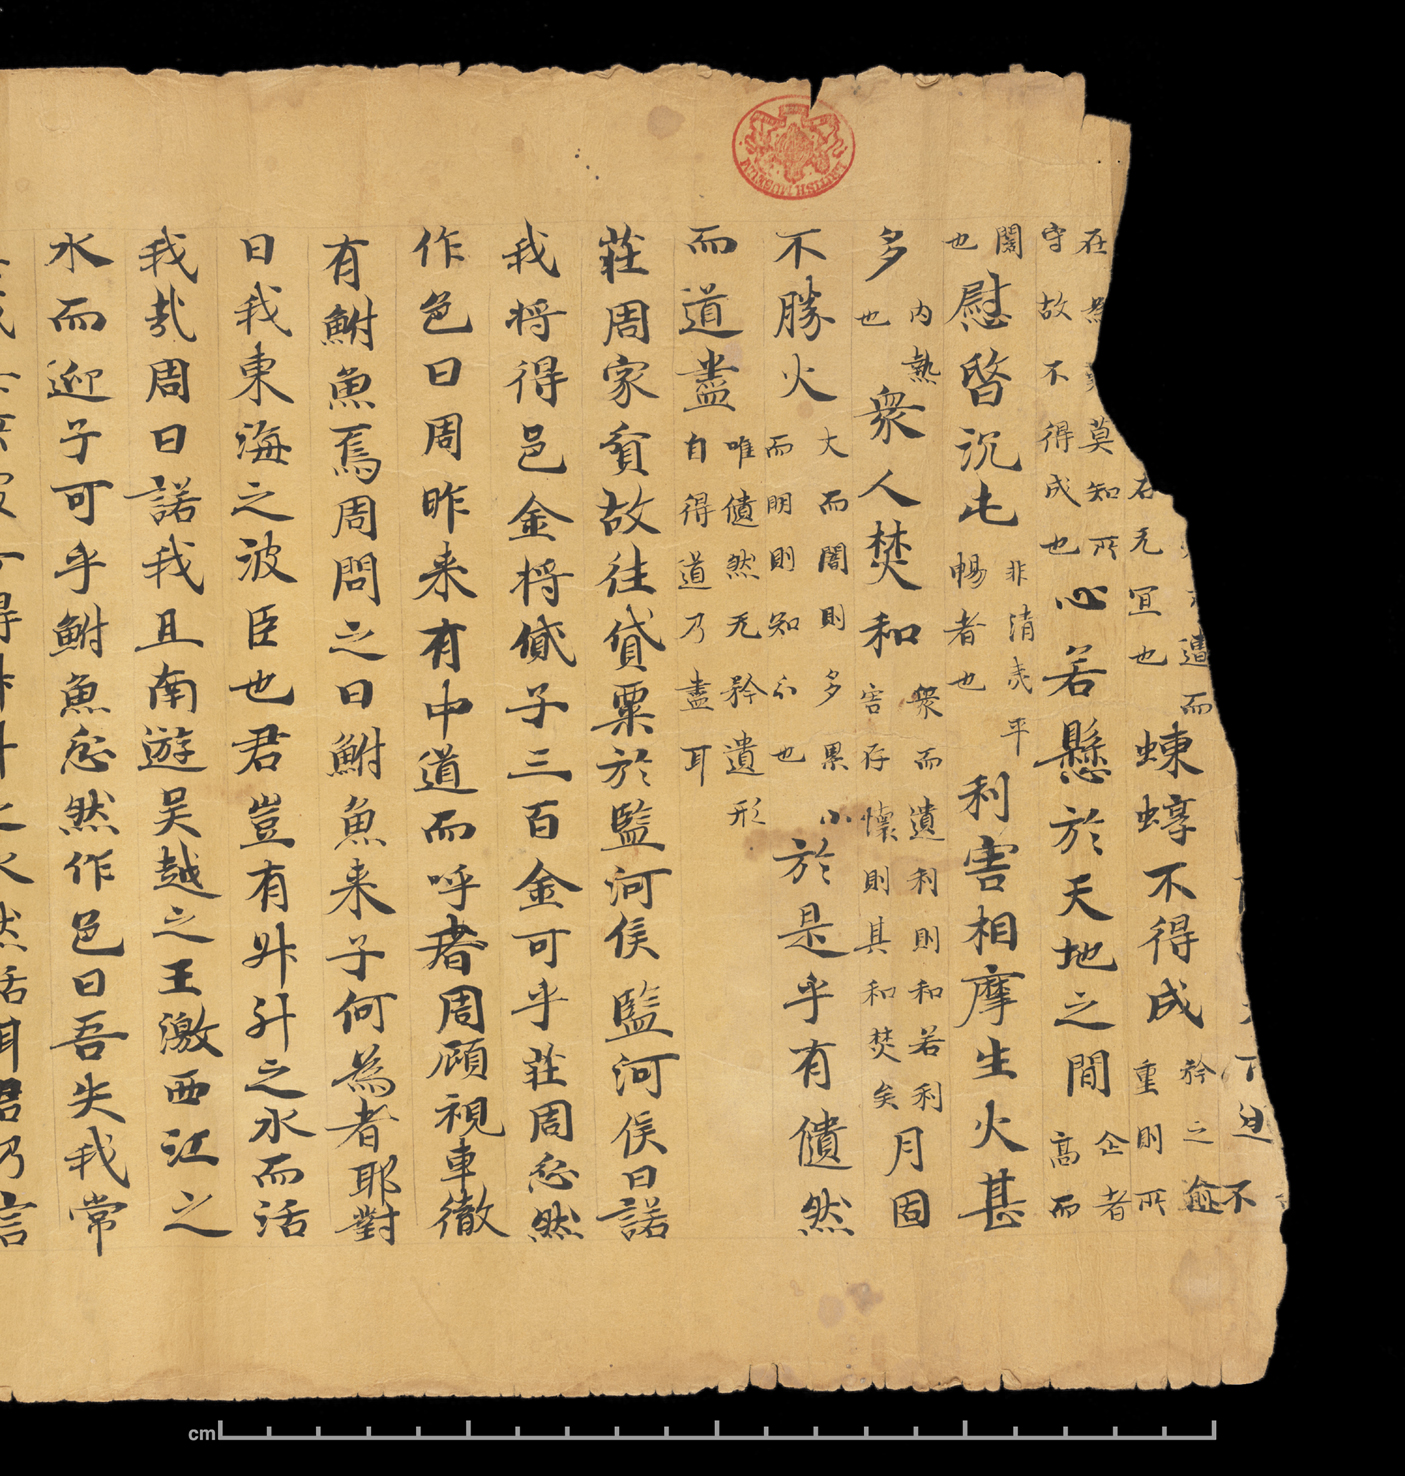 下迫不
遣而
右无宜也
蝀蜳不得成
矜之愈
重則所
在
莫知所
守故不得成也
心若懸於天地之間
企者
高而
闊
也
慰暋沉屯
非清夷平
暢者也
利害相摩生火甚
多
内熱
也
衆人焚和
衆而遺利則和若利
害存懷則其和焚矣
月固
不勝火
大而闇則多累小
而明則知分也
於是乎有僓然
而道盡
唯僓然无矜遺形
自得道乃盡耳
莊周家貧故往貸粟於監河侯監河侯曰諾
我將得邑金將貸子三百金可乎莊周忿然
作色曰周昨来有中道而呼者周顧視車徹
有鮒魚焉周問之曰鮒魚来子何為者耶對
曰我東海之波臣也君豈有升斗之水而活
我哉周曰諾我且南遊吳越之王激西江之
水而迎子可乎鮒魚忿然作色曰吾失我常
得升斗之水然活耳君乃言
BRITISH MUSEUM
cm